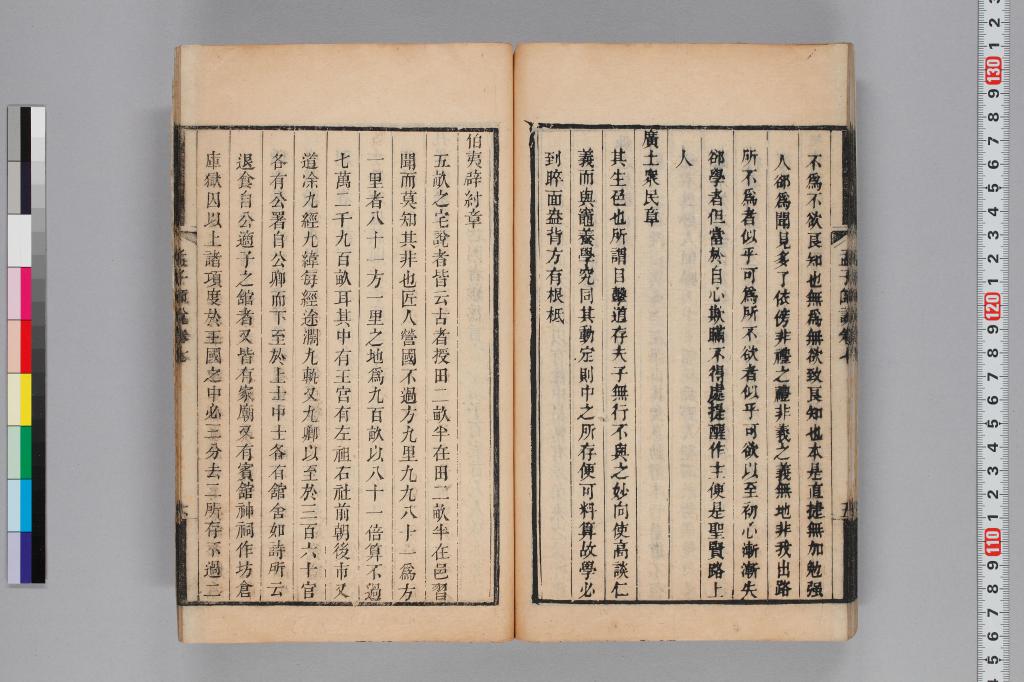 不爲不欲良知也無爲無欲致良知也本是直捷無加勉强
人卻爲聞見多了依傍非禮之禮非義之義無地非我出路
所不爲者似乎可爲所不欲者似乎可欲以至初心漸漸失
卻學者但當於自心欺瞞不得處提醒作主便是聖賢路上
人
廣土衆民章
其生色也所謂目擊道存夫子無行不與之妙向使高談仁
義而與龍養學究同其動定則中之所存便可料算故學必
到睟面盎背方有根柢
伯夷辟紂章
五畝之宅說者皆云古者授田二畝半在田二畝半在邑習
聞而莫知其非也匠人營國不過方九里九九八十一爲方
一里者八十一方一里之地爲九百畝以八十一倍算不過
七萬二千九百畝耳其中有王宮有左祖右社前朝後市又
道涂九經九緯每經途濶九軌又九卿以至於三百六十官
各有公署自公卿而下至於上士中士各有館舍如詩所云
退食自公適子之館者又皆有家廟又有賓館神祠作坊倉
庫獄囚以上諸項度於王國之中必三分去二所存不過二